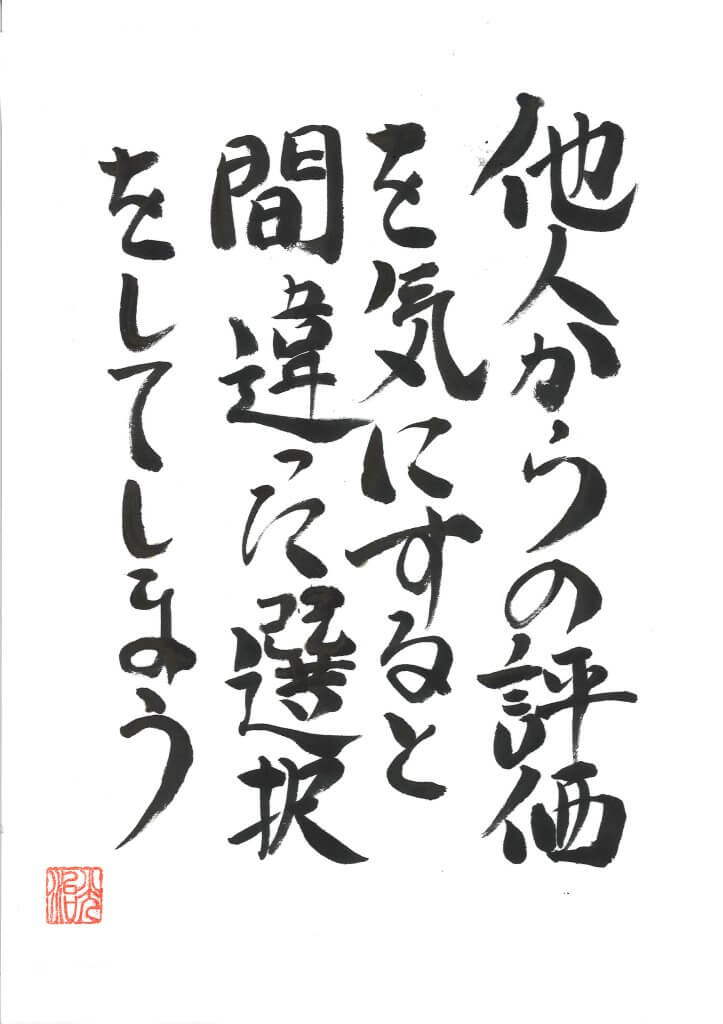 他人からの評価
を気にすると
間違った選択
をしてしまう